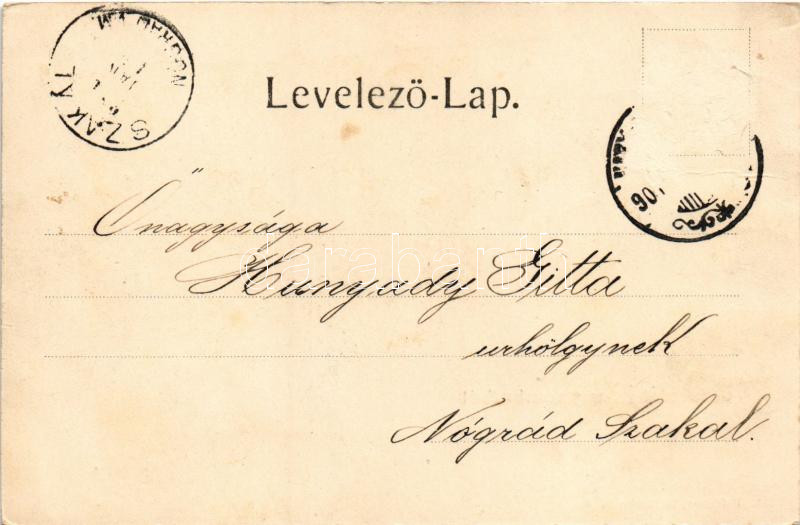 Levelező-Lap.
SZAKAL
Őnagysága
Hunyady Gitta
urhölgynek
Nógrád Szakal.
darabanth